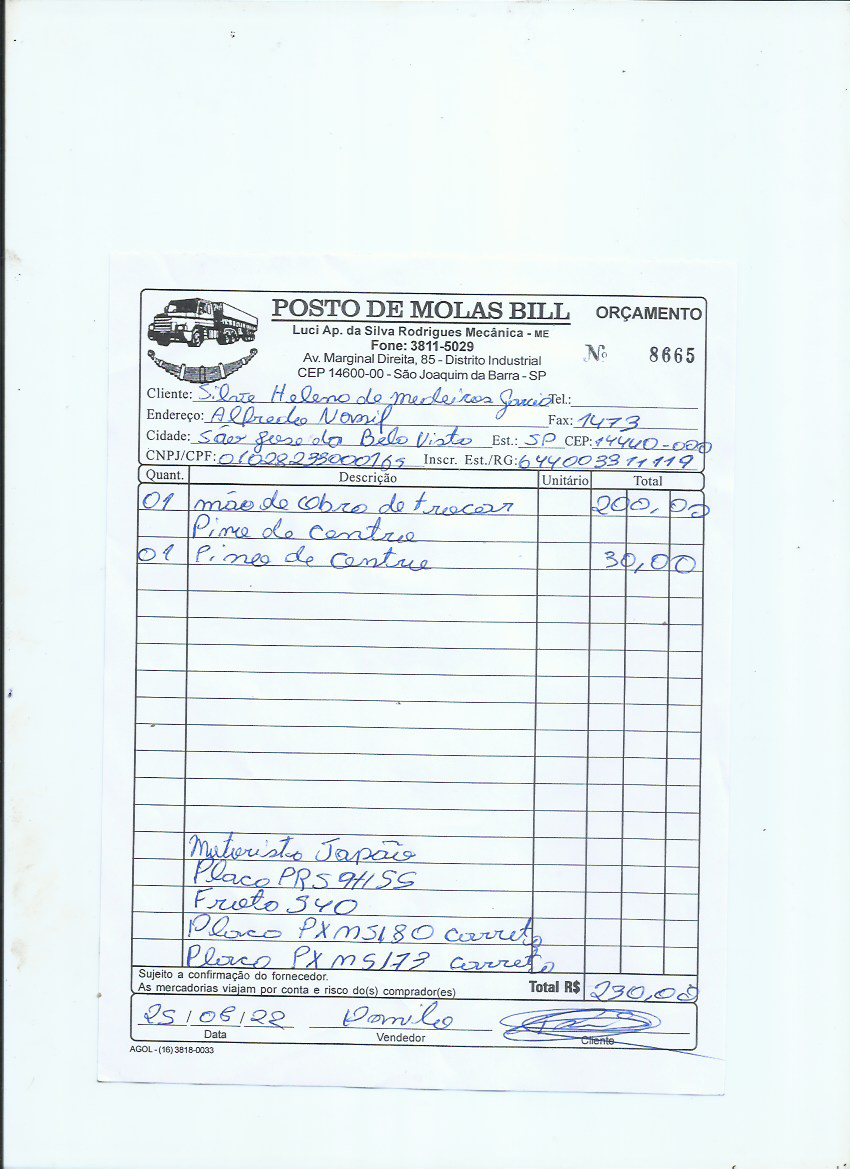 POSTO DE MOLAS BILL ORÇAMENTO
Luci Ap. da Silva Rodrigues Mecânica - ME
Fone: 3811-5029
Nº 8665
Av. Marginal Direita, 85 - Distrito Industrial
CEP 14600-00 - São Joaquim da Barra - SP
Cliente: Silvie Heleno de medeiros Garcia Tel.:
Endereço: Alfredo Fax: 1473
Cidade: São Jose da Belo Visto Est.: SP CEP: 14440-000
CNPJ/CPF: 01028233000165 Inscr. Est./RG: 644003311119
Quant. Descrição Unitário Total
01 mão de obro de trocar 200,00
Pino de centro
01 Pino de centro 30,00
Motoristo Japão
Placo PRS9H55
Froto 540
Placo PXM5180 carreto
Placo PXM5173 carreto
Sujeito a confirmação do fornecedor.
As mercadorias viajam por conta e risco do(s) comprador(es) Total R$ 230,00
25/06/22 Danilo
Data Vendedor Cliente
AGOL - (16) 3818-0033